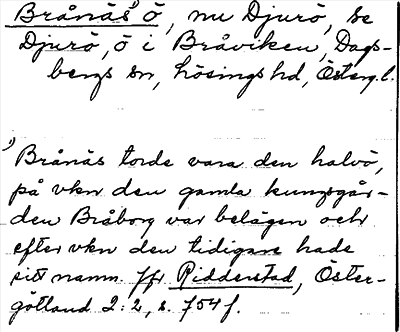 Brånäs¹⁾ ö, nu Djurö, se
Djurö, ö i Bråviken, Dags-
bergs sn, Lösings hd, Österg. l.
¹⁾ Brånäs torde vara den halvö,
på vkn den gamla kungsgår-
den Bråborg var belägen och
efter vkn den tidigare hade
sitt namn. Jfr Ridderstad, Öster-
götland 2:2, s. 754 f.